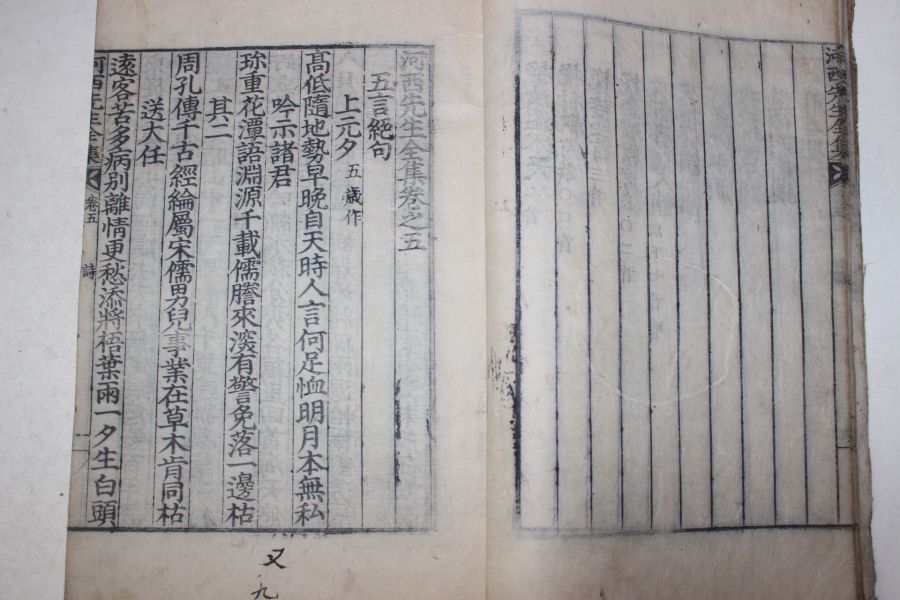 河西先生全集卷之五
五言絕句
上元夕 五歲作
高低隨地勢早晚自天時人言何足恤明月本無私
吟示諸君
珎重花潭語淵源千載儒謄來深有警免落一邊枯
其二
周孔傳千古經綸屬宋儒男兒事業在草木肯同枯
送大任
遠客苦多病別離情更愁添將梧葉雨一夕生白頭
河西先生全集 卷五 詩
又
九